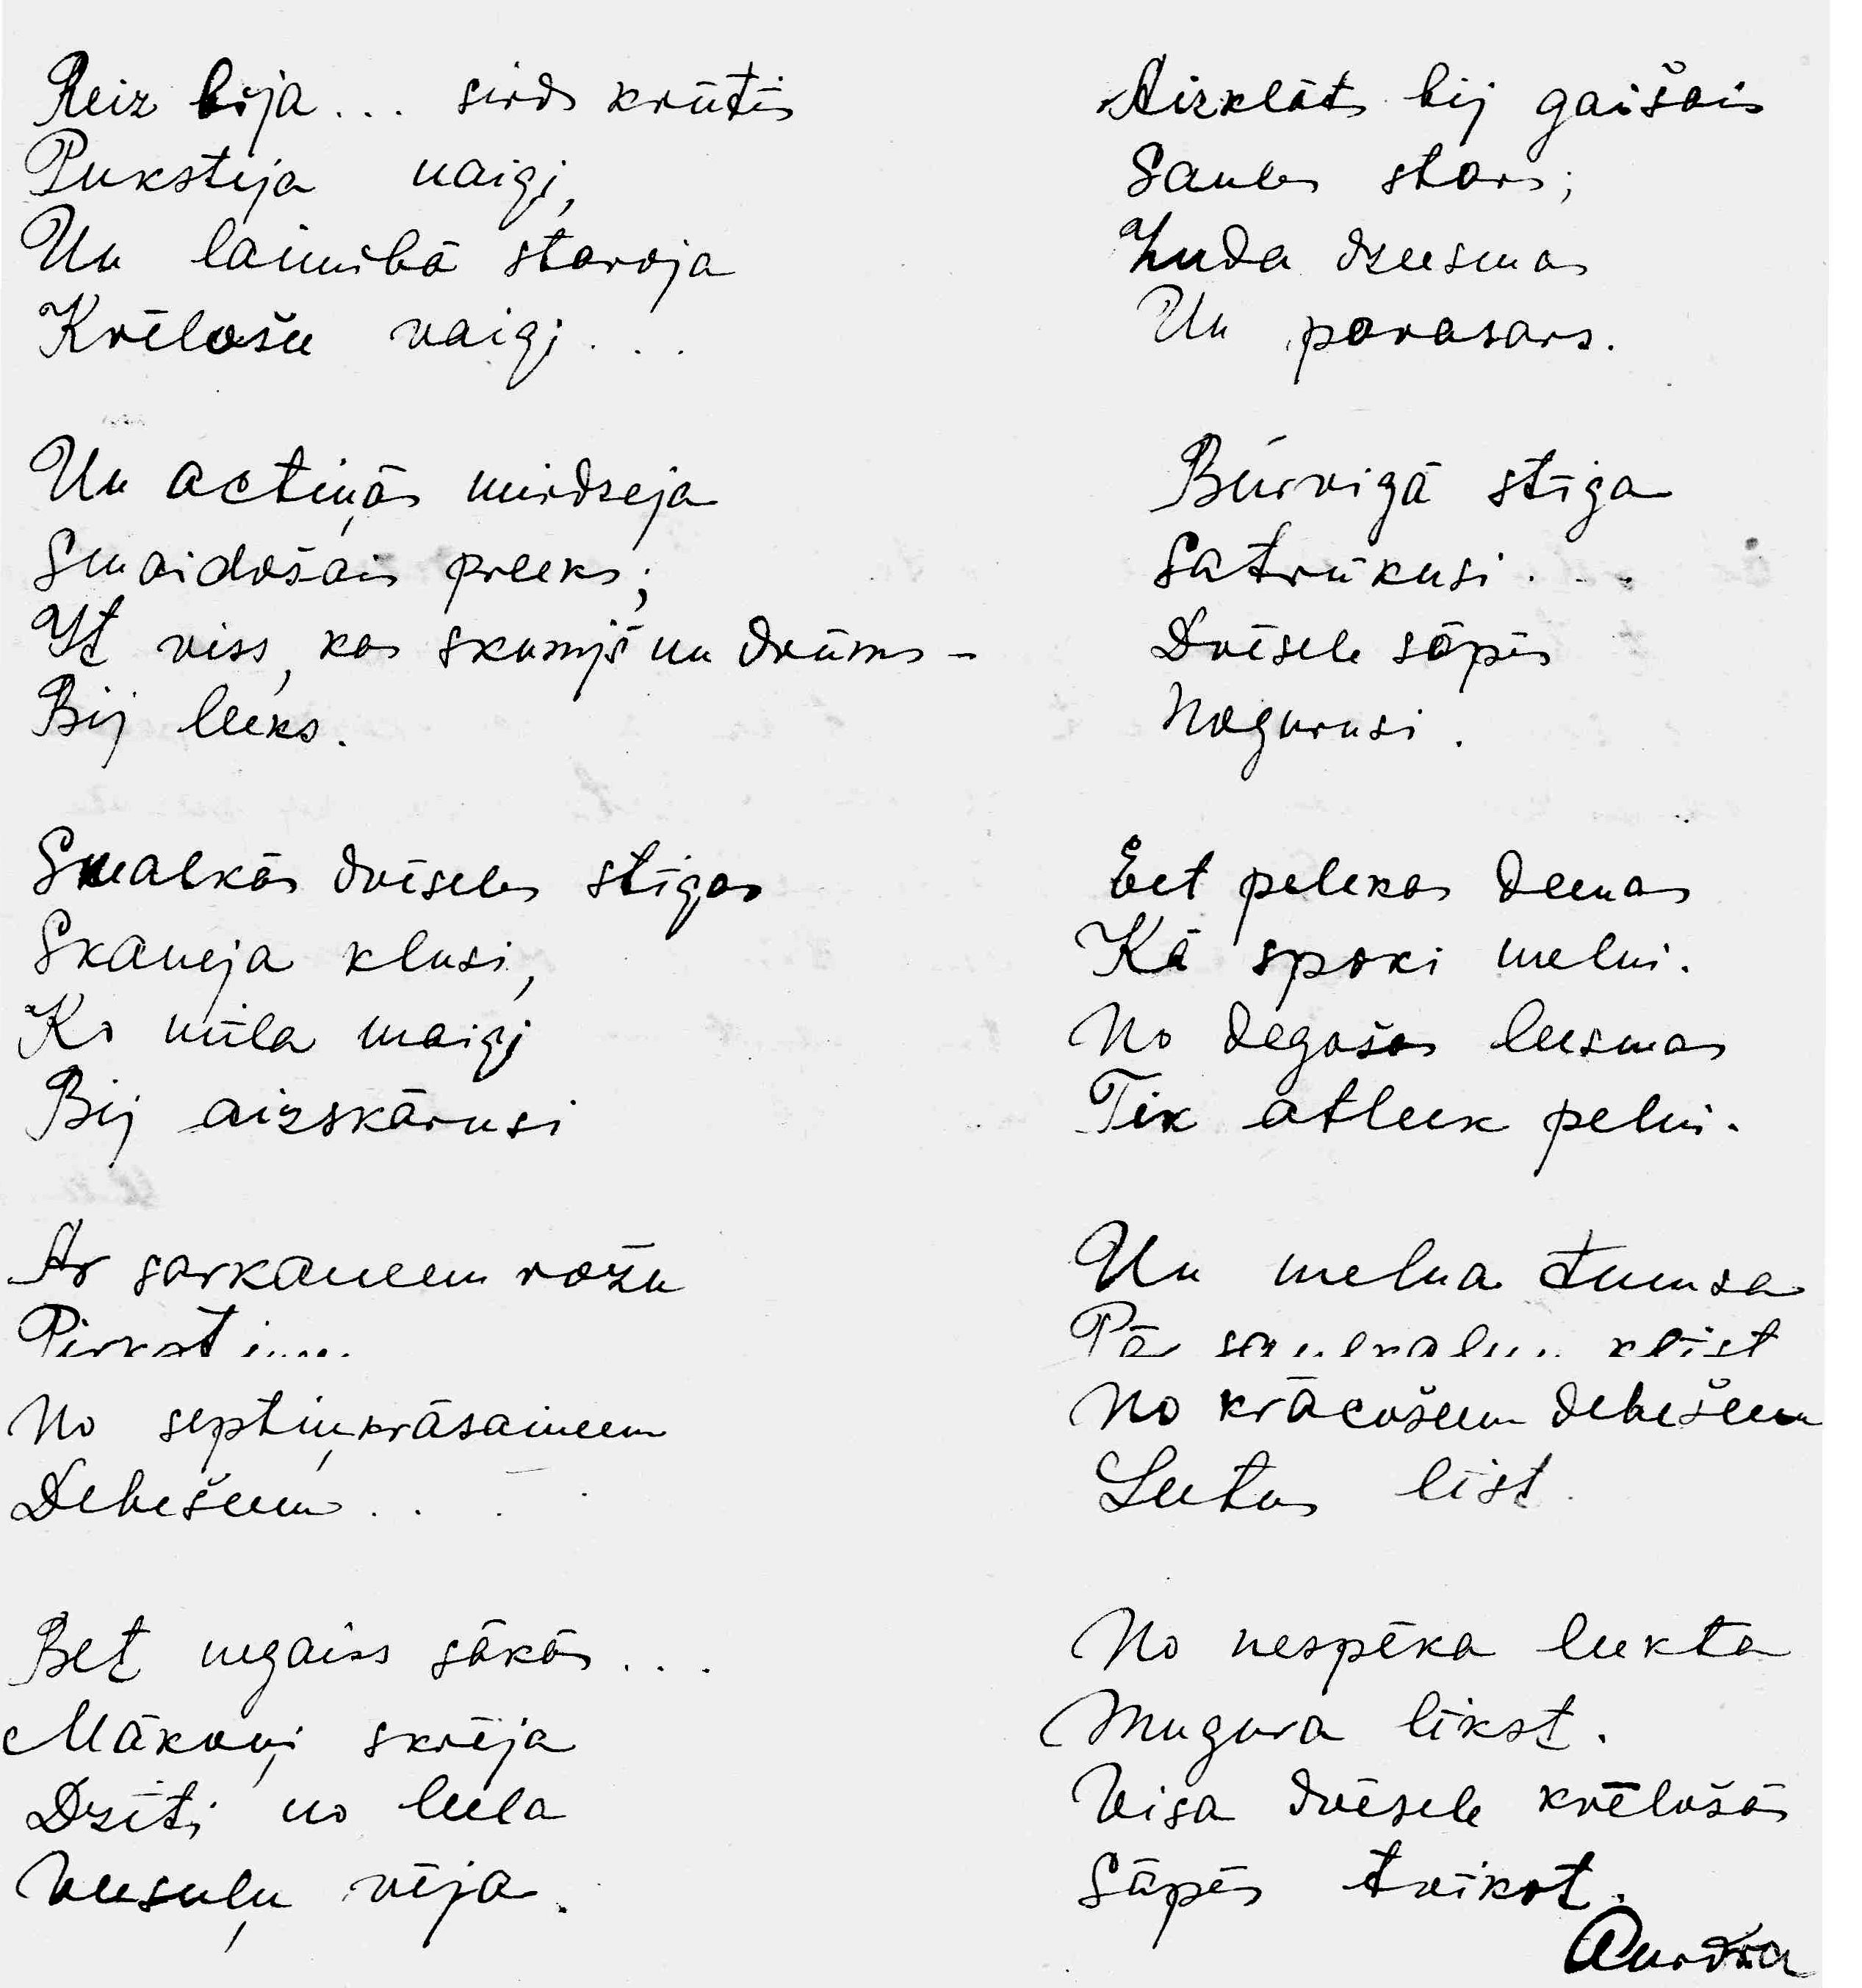 Reiz bija... sirds krūtīs
Pukstēja naigi,
Un laimībā staroja
Kvēlošee vaigi...
Un actiņās mirdzeja
Smaidošais preeks;
It viss, kas skumjš un drūms -
Bij leeks.
Smalkās dvēseles stīgas
Skaneja klusi,
Ko mīla maigi
Bij aizskārusi
Ar sarkaneem rožu
No septiņkrāsaineem
Debešeem...
Bet negaiss sākās...
Mākoņi skrēja
Dzīti no leela
Veesuļu vēja.
Aizklāts bij gaišais
Saules stars;
Zuda dzeesmas
Un pavasars.
Būrvīgā stīga
Satrūkusi...
Dvēsele sāpēs
Nogurusi.
Eet pelēkas deenas
Kā spoki melni.
No degošas leesmas
Tik atleek pelni.
Un melna tumsa
Pā klīst
No krācošeem debešeem
Leetus līst.
No nespēka leekta
Mugura līkst.
Visa dvēsele kvēlošās
Sāpēs tvīkst.